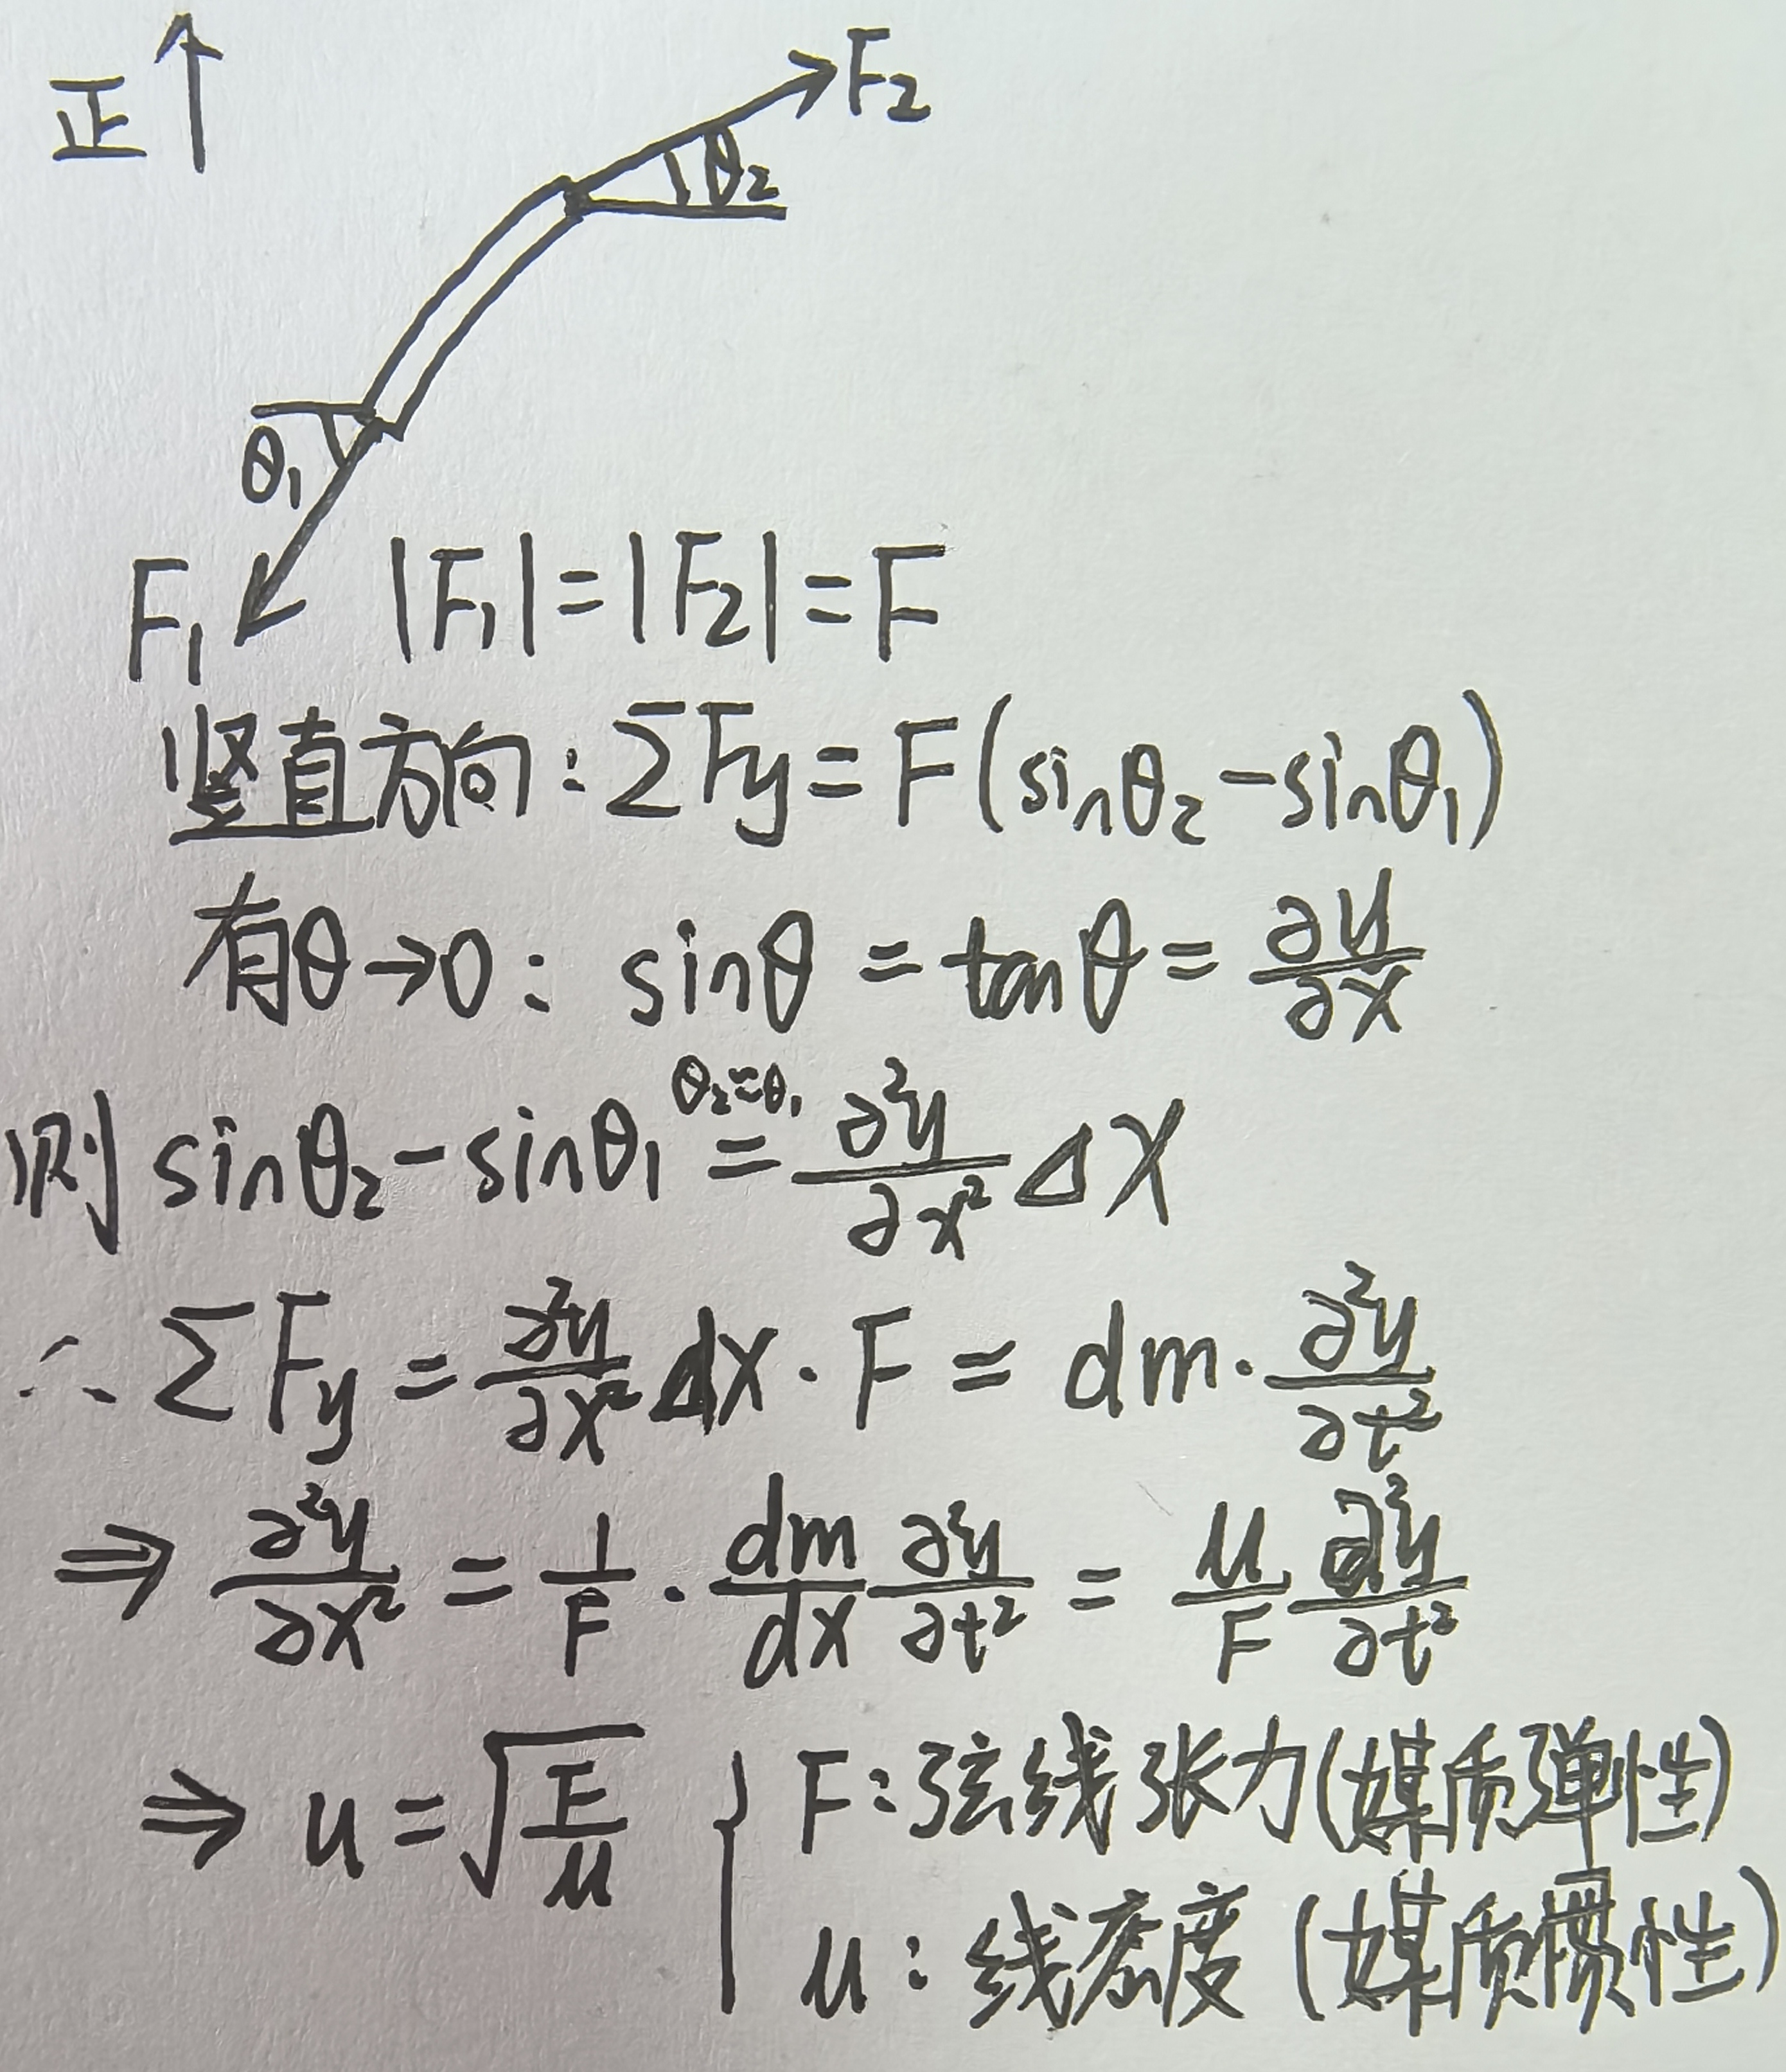 正↑
F₂
θ₂
θ₁
F₁ |F₁|=|F₂|=F
竖直方向:ΣFy=F(sinθ₂-sinθ₁)
有θ→0: sinθ=tanθ=∂y/∂x
则 sinθ₂-sinθ₁ =(θ₂≈θ₁) ∂²y/∂x² Δx
∴ΣFy=∂²y/∂x² dx·F=dm·∂²y/∂t²
⇒ ∂²y/∂x²=1/F·dm/dx ∂²y/∂t²=μ/F ∂²y/∂t²
⇒ u=√(F/μ) { F:弦线张力(媒质弹性)
μ:线密度(媒质惯性)